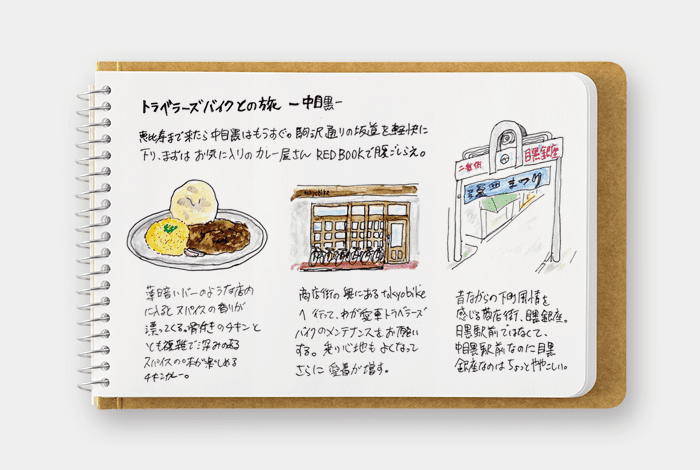 トラベラーズバイクとの旅 ー中目黒ー
恵比寿まで来たら中目黒はもうすぐ。駒沢通りの坂道を軽快に
下り、まずはお気に入りのカレー屋さん RED BOOKで腹ごしらえ。
tokyobike
二番街
目黒銀座
まつり
薄暗いバーのような店内
に入るとスパイスの香りが
漂ってくる。骨付きのチキンと
とも複雑で深みのある
スパイスの味が楽しめる
チキンカレー。
商店街の奥にあるtokyobike
へ行って、わが愛車トラベラーズ
バイクのメンテナンスをお願い
する。乗り心地もよくなって
さらに愛着が増す。
昔ながらの下町風情を
感じる商店街、目黒銀座。
目黒駅前ではなくて、
中目黒駅前なのに目黒
銀座なのはちょっとややこしい。